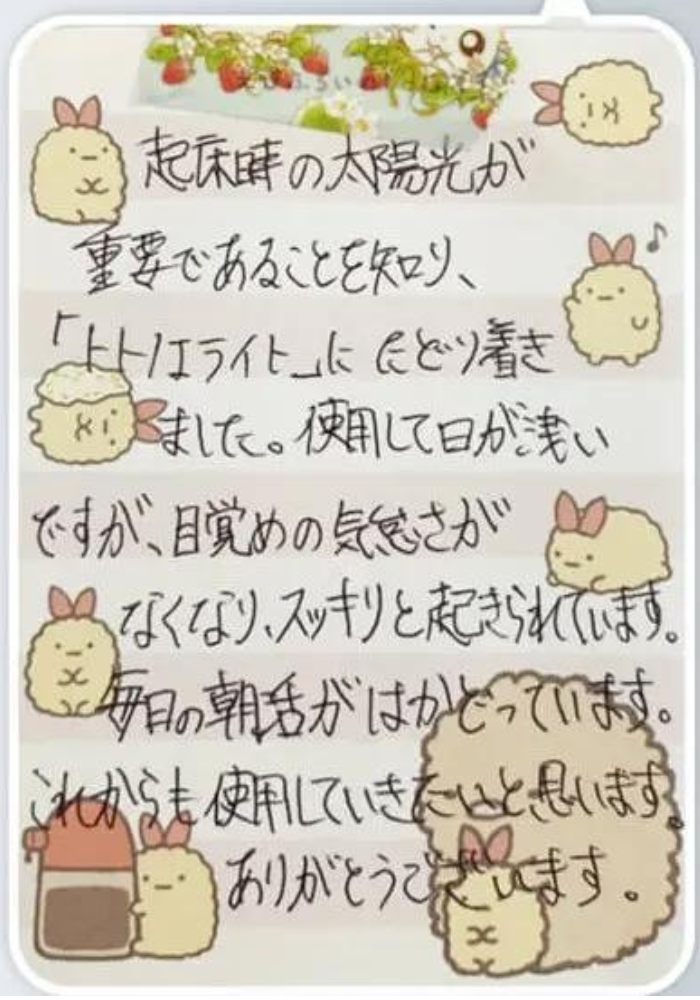 起床時の太陽光が
重要であることを知り、
「トトノエライト」にたどり着き
ました。使用して日が浅い
ですが、目覚めの気怠さが
なくなり、スッキリと起きられています。
毎日の朝活がはかどっています。
これからも使用していきたいと思います。
ありがとうございます。